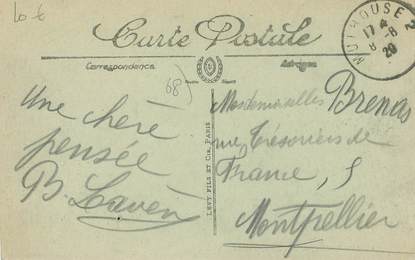 10 €
MULHOUSE 2
17 4
8 -8
20
Carte Postale
Correspondance
Adresse
68
Une chère
pensée
B. Laven
LEVY FILS ET Cie, PARIS
Mesdemoiselles Brenas
rue Trésoriers de
France, 5
Montpellier